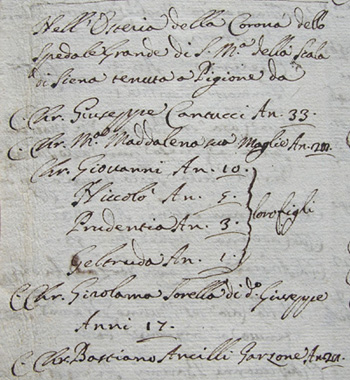 Nell'Osteria della Corona dello
Spedale Grande di S. Mª della Scala
di Siena tenuta a Pigione da
C. Chr. Giuseppe Cantucci An. 33.
C. Chr. Mª Maddalena sua Moglie An.
Chr. Giovanni An. 10.
Niccolò An. 5.
Prudentia An. 3.
Geltruda An. 1.
loro figli
C. Chr. Girolama Sorella di dº Giuseppe
Anni 17.
C. Chr. Bastiano Ancilli Garzone An.